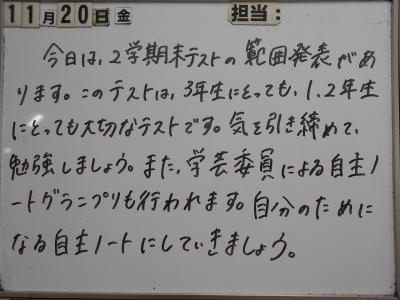 11月20日金 担当：
今日は、2学期末テストの範囲発表があ
ります。このテストは、3年生にとっても、1、2年生
にとっても大切なテストです。気を引き締めて、
勉強しましょう。また、学芸委員による自主ノ
ートグランプリも行われます。自分のために
なる自主ノートにしていきましょう。